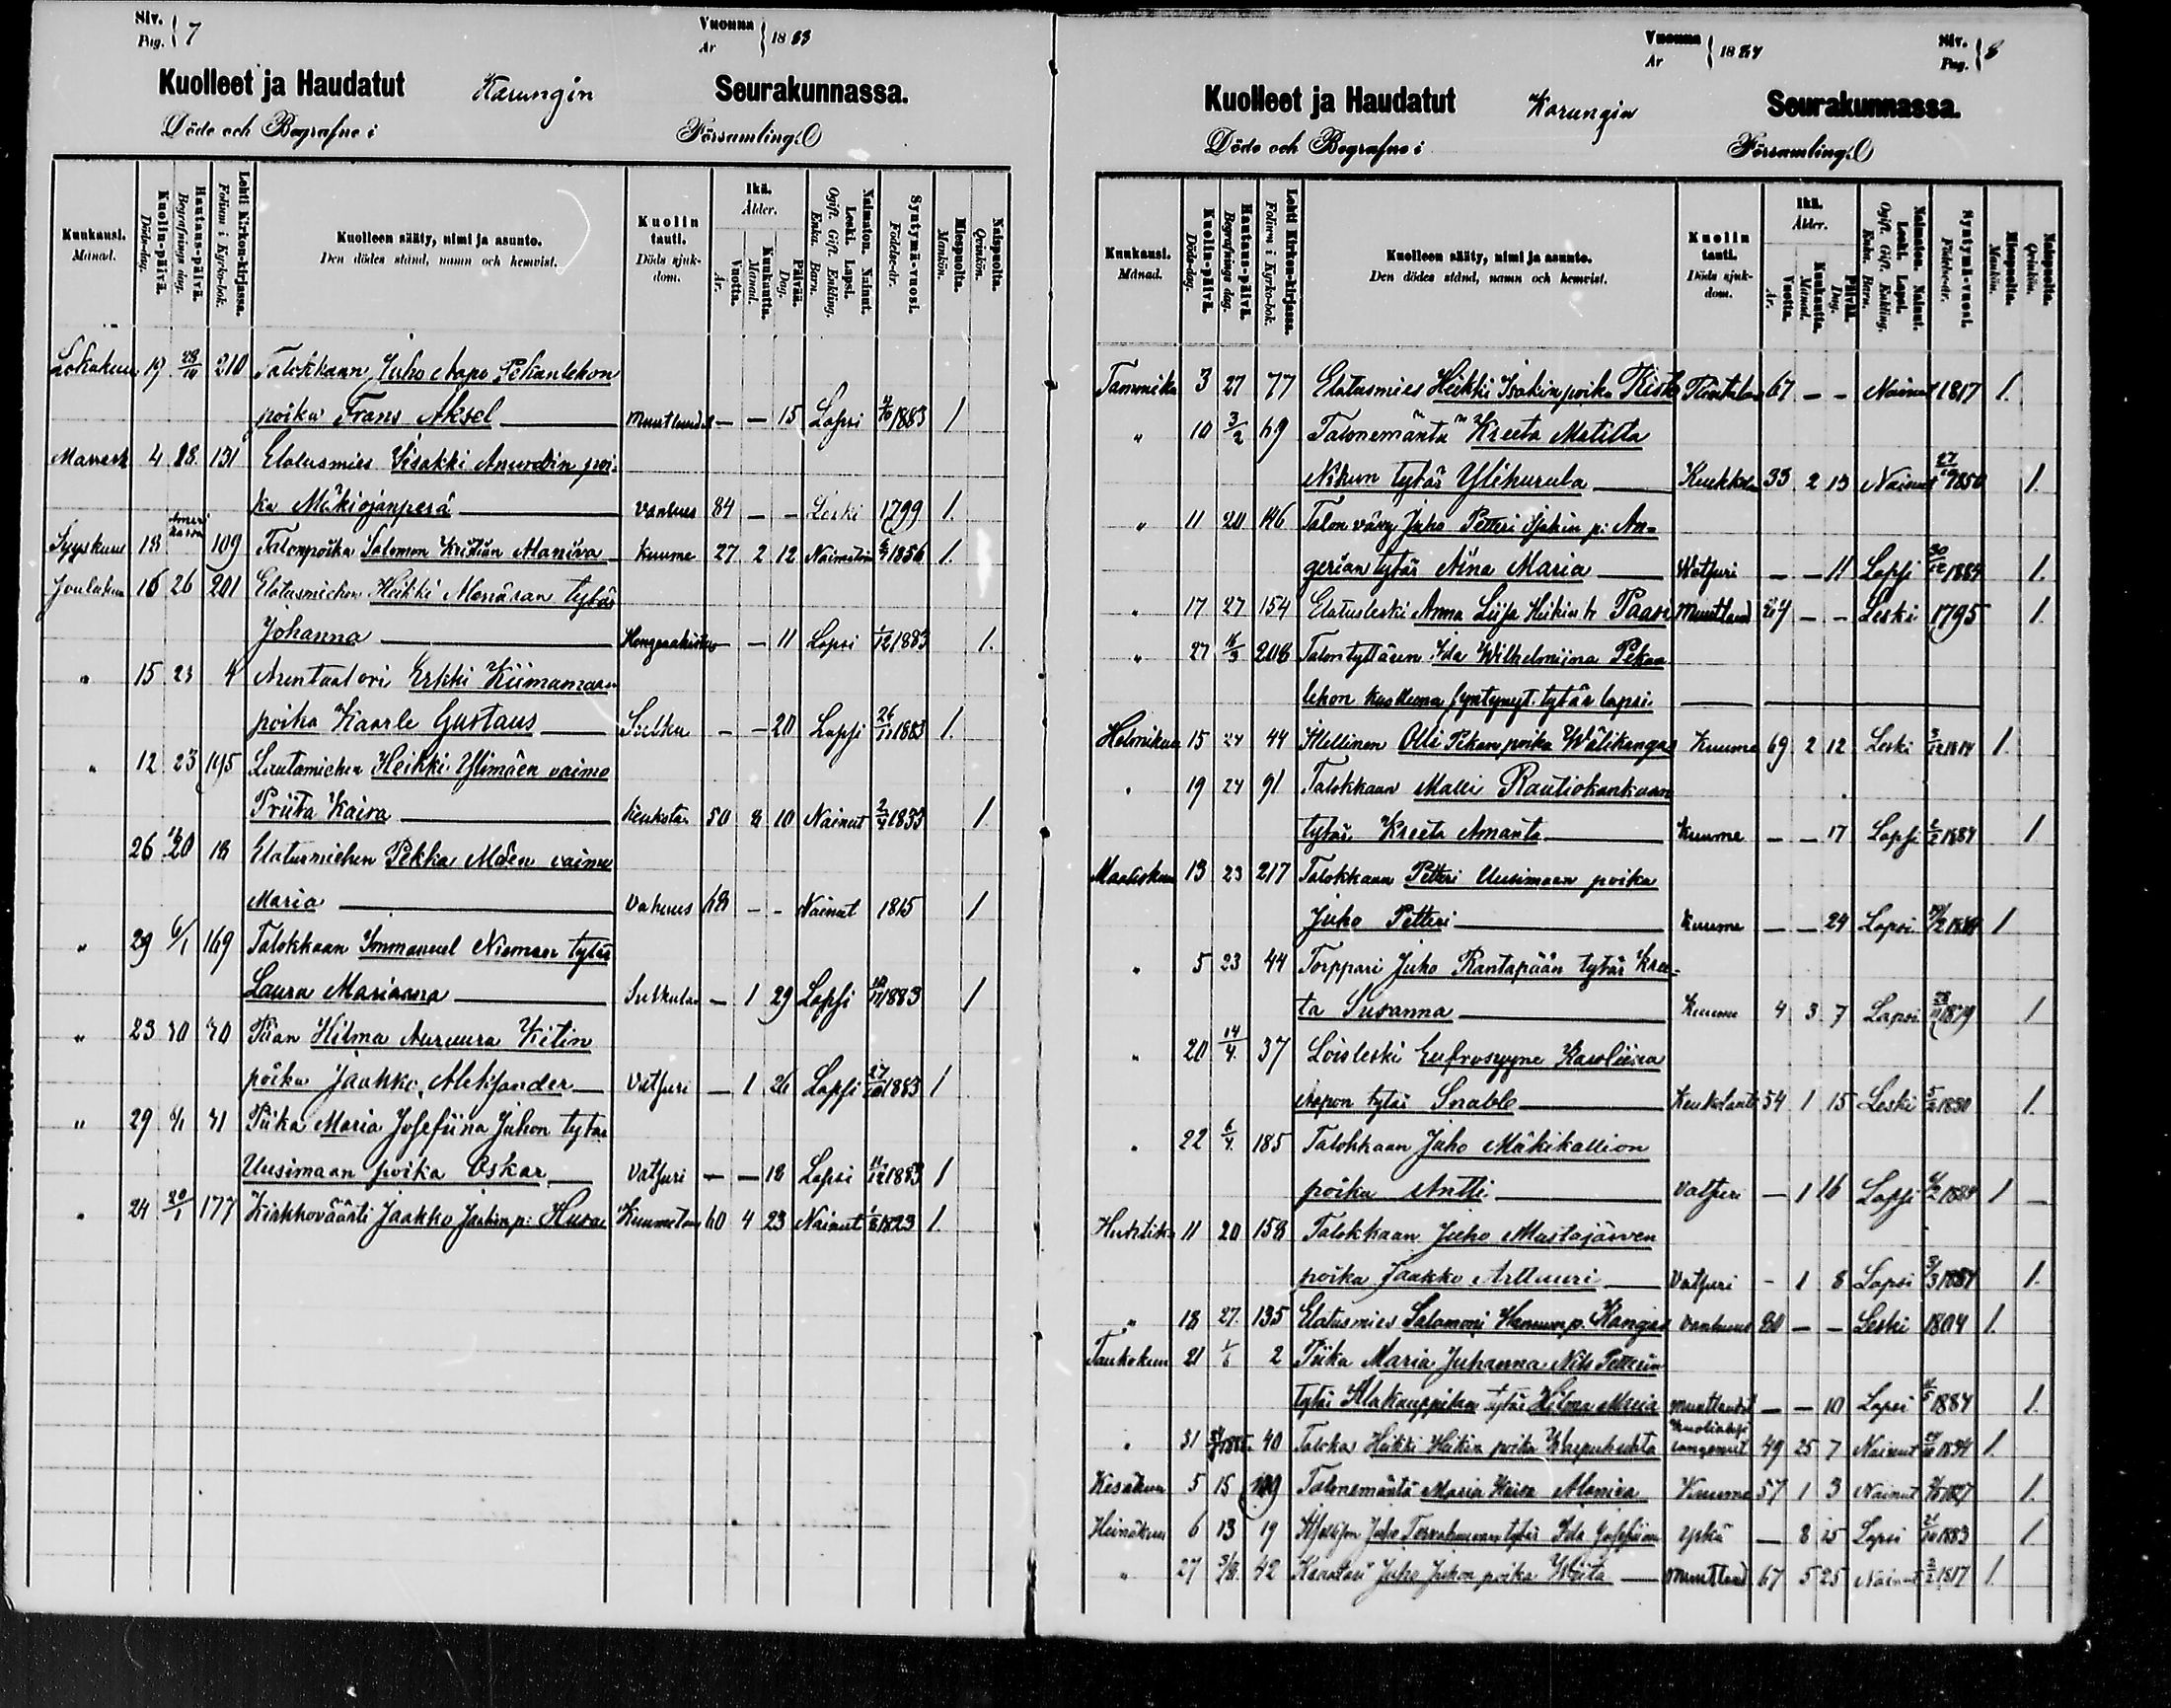 Siv. Pag. 7
Vuonna Ar 1883
Kuolleet ja Haudatut Karungin Seurakunnassa.
Döde och Begrafne i Församling.
Kuukausi. Månad.
Kuolin-päivä. Döds-dag.
Hautaus-päivä. Begrafnings dag.
Lehti Kirkon-kirjassa. Folium i Kyrko-bok.
Kuolleen sääty, nimi ja asunto. Den dödes stånd, namn och hemvist.
Kuolin tauti. Döds sjuk-dom.
Ikä. Ålder.
Vuotta. År.
Kuukautta. Månad.
Päivää. Dag.
Naimaton. Nainut. Leski. Lapsi. Ogift. Gift. Enkling. Enka. Barn.
Syntymä-vuosi. Födelse-år.
Miespuolta. Mankön.
Naispuolta. Qvinkön.
Lokakuu 19 28/10 210 Talokkaan Juho Aapo Pekanlehon
poika Frans Aksel muuttaudit — — 15 Lapsi 1883 1
Marrask 4 18. 131 Elatusmies Iisakki poi-
ka Mäkiojanperä vanhuus 84 — — Leski 1799 1.
Syyskuu 18 109 Talonpoika Salomon Kristian Alaniva kuume 27 2 12 Naimaton 1856 1.
Joulukuu 16 26 201 Elatusmiehen Heikki tytär
Johanna — 11 Lapsi 1/12 1883 1.
" 15 23 4 Arentuatori Erkki Kiimamaan
poika Kaarle Gustaus — — 20 Lapsi 26/11 1883 1.
" 12 23 195 Lautamiehen Heikki Ylimäen vaimo
Priita Kaira keukotau 50 8 10 Nainut 2/4 1833 1
26 20 18 Elatusmiehen Pekka vaimo
Maria vahuus 68 — — Nainut 1815 1
" 29 6/1 169 Talokkaan Immanuel Nieman tytär
Laura Marianna — 1 29 Lapsi 1883 1
" 23 30 40 Piian Hilma Auruura Kitin
poika Jaakko Aleksander Vatsuri — 1 26 Lapsi 27/10 1883 1
" 29 6/1 41 Piika Maria Josefiina Juhon tytär
Uusimaan poika Oskar Vatsuri — — 18 Lapsi 11/12 1883 1
" 24 20/1 177 Kirkkoväärti Jaakko Jaakin p: Hura Kuumetau 60 4 23 Nainut 1823 1.
Vuonna Ar 1884
Siv. Pag. 8
Kuolleet ja Haudatut Karungin Seurakunnassa.
Döde och Begrafne i Församling.
Kuukausi. Månad.
Kuolin-päivä. Döds-dag.
Hautaus-päivä. Begrafnings dag.
Lehti Kirkon-kirjassa. Folium i Kyrko-bok.
Kuolleen sääty, nimi ja asunto. Den dödes stånd, namn och hemvist.
Kuolin tauti. Döds sjuk-dom.
Ikä. Ålder.
Vuotta. År.
Kuukautta. Månad.
Päivää. Dag.
Naimaton. Nainut. Leski. Lapsi. Ogift. Gift. Enkling. Enka. Barn.
Syntymä-vuosi. Födelse-år.
Miespuolta. Mankön.
Naispuolta. Qvinkön.
Tammiku 3 27 77 Elatusmies Heikki Isakin poika 67 — — Nainut 1817 1.
" 10 3/2 69 Talonemäntä Kreeta Matilda
tytär Ylikurula Keukkotau 33 2 13 Nainut 27/10 1850 1.
" 11 20 146 Talon vävy Juho Petteri Isakin p: An-
gerian tytär Aina Maria Watsuri — — 11 Lapsi 1884 1.
" 17 27 154 Elatusleski Anna Liisa Heikin tr Paasi Muuttaud — — Leski 1795 1.
" 27 16/3 208 Talontyttären Ida Wilhelmiina Pekan
lehon kuolleena syntynyt tytär lapsi
Helmikuu 15 24 44 Itsellinen Olli Pekan poika Wälikangas Kuume 69 2 12 Leski 1814 1.
" 19 24 91 Talokkaan Matti Rautiokankaan
tytär Kreeta Amanta Kuume — — 17 Lapsi 2/2 1884 1
Maaliskuu 13 23 217 Talokkaan Petteri Uusimaan poika
Juho Petteri Kuume — — 24 Lapsi 1884 1
" 5 23 44 Torppari Juho Rantapään tytär Kree-
ta Susanna Kuume 4 3 7 Lapsi 28/11 1879 1
" 20 14/4 37 Loisleski Eufrosyyne Karoliina
Aapon tytär Snabb Keukotauti 54 1 15 Leski 5/2 1830 1.
" 22 6/4 185 Talokkaan Juho Mäkikallion
poika Antti Vatsuri — 1 16 Lapsi 6/2 1884 1
Huhtiku 11 20 158 Talokkaan Juho Mustajärven
poika Jaakko Arttuuri Vatsuri — 1 8 Lapsi 3/3 1884 1.
" 18 27. 135 Elatusmies Salamoni Hannun p. Kangas Vanhuus 80 — — Leski 1804 1.
Toukokuu 21 1/6 2 Piika Maria Juhanna Nils Petterin
tytär Alakauppilan tytär Hilma Maria muuttaudit — — 10 Lapsi 11/5 1884 1.
" 31 40 Taloka Heikki Heikin poika Karpuhuhta 49 25 7 Nainut 1834 1.
Kesäkuu 5 15 109 Talonemäntä Maria Kaisa Alaniva Kuume 57 1 3 Nainut 1827 1.
Heinäkuu 6 13 19 Itsellisen Juho tytär Ida Josefiina yskä — 8 15 Lapsi 21/10 1883 1
" 27 3/8 42 Juho Juhon poika Wiita Muuttaud 67 5 25 Nainut 2/2 1817 1.